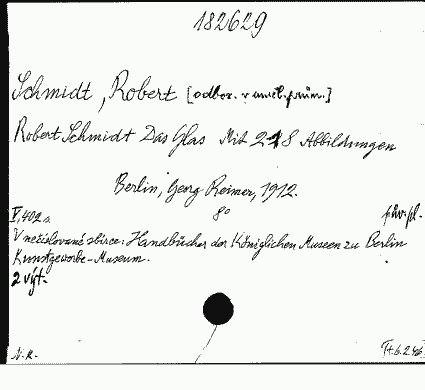 182629
Schmidt, Robert [odbor. v uměl. prům.]
Robert Schmidt Das Glas Mit 218 Abbildungen
Berlin, Georg Reimer, 1912.
8° pův. pl.
V, 402 s.
V nečíslované sbírce: Handbücher der Königlichen Museen zu Berlin
Kunstgewerbe-Museum.
2 výt.
N.R.